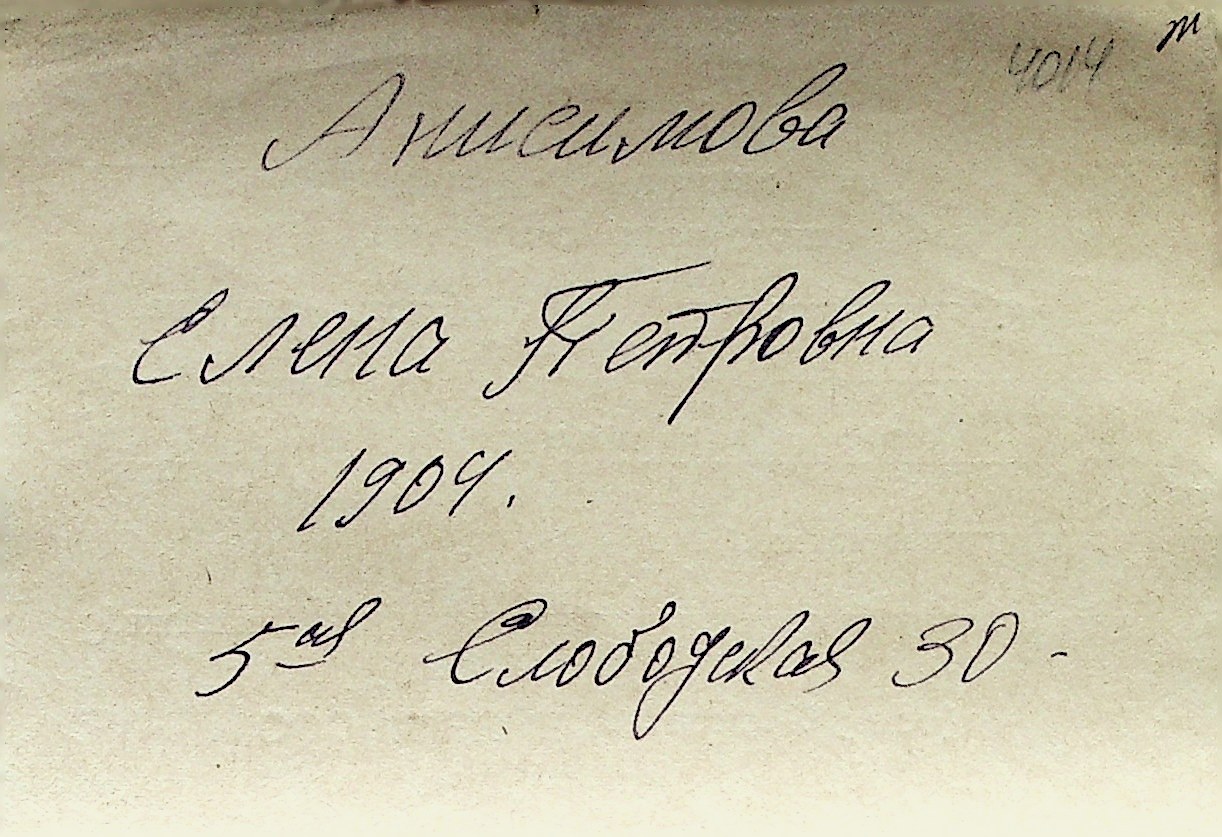 4014 т
Анисимова
Елена Петровна
1904.
5ая Слободская 30 -